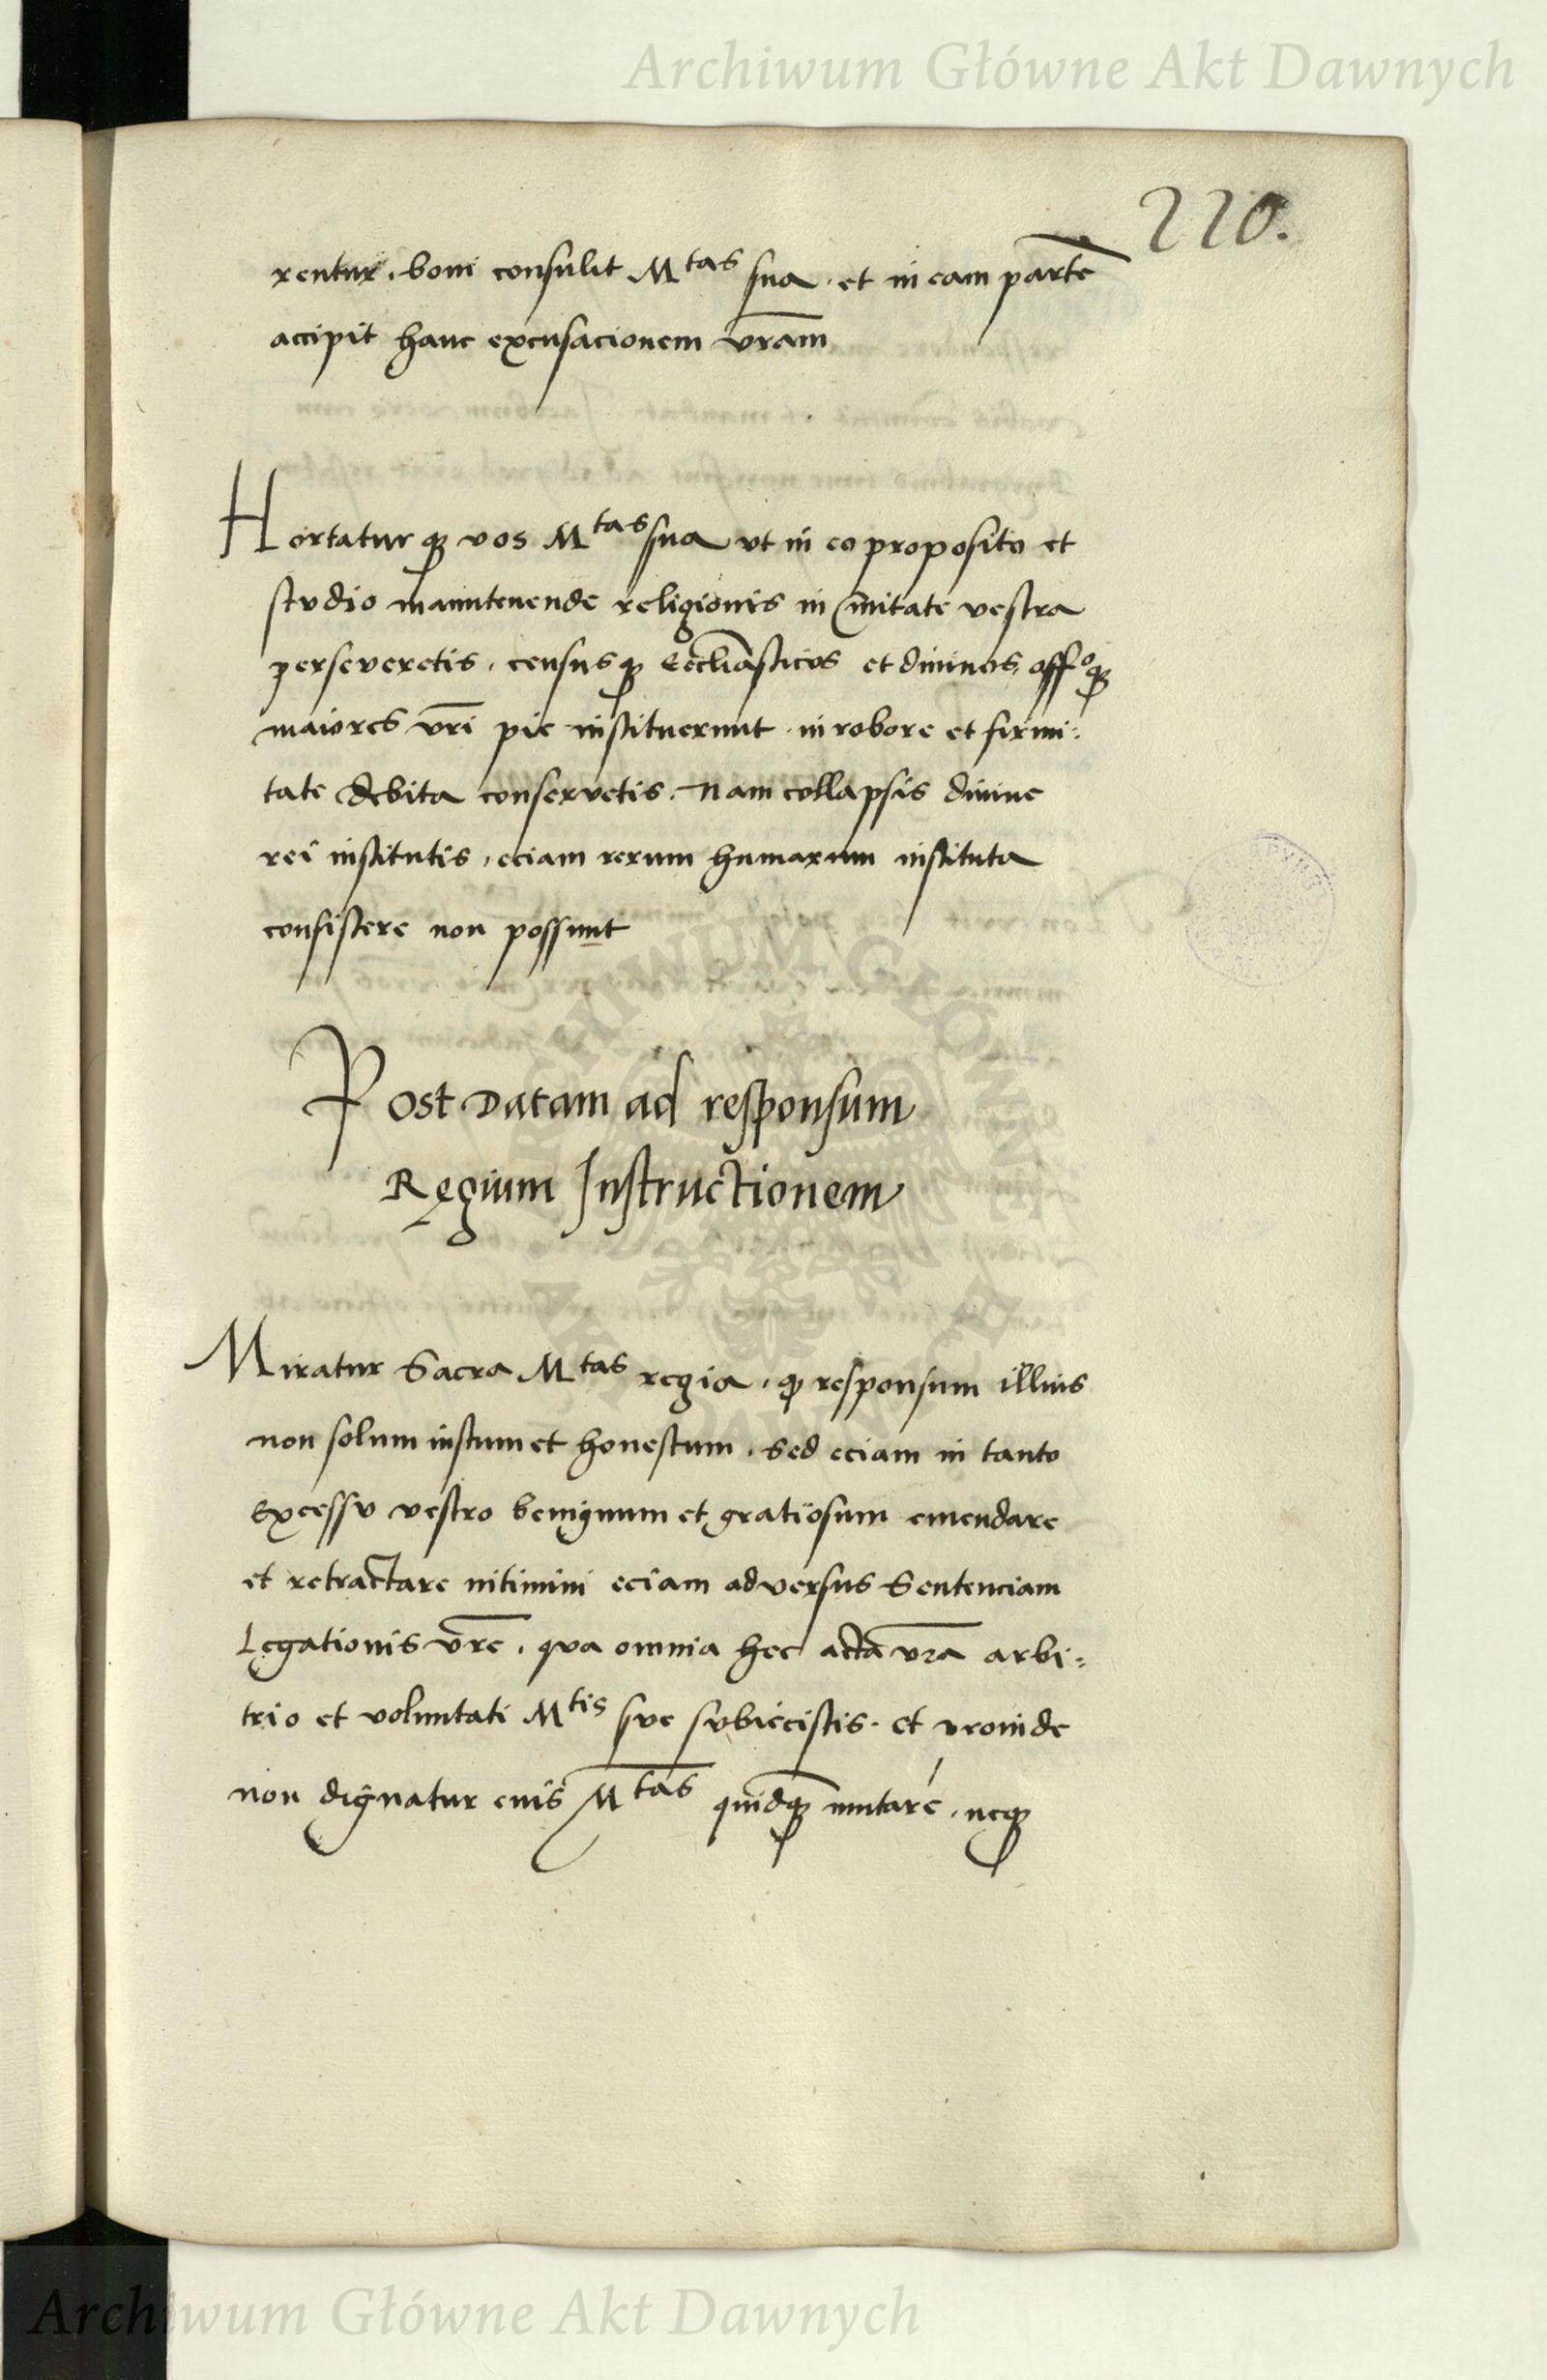 Archiwum Główne Akt Dawnych
220.
rentur. boni consulit Mtas sua. et in eam parte
accipit hanc excusacionem vram
Hortatur qꝫ vos Mtas sua vt in eo proposito et
stvdio manutenende religionis in Civitate vestra
perseveretis, census qꝫ Ecclīasticos et divinos, quos
maiores vri pie instituerunt. in robore et firmi:
tate debita conservetis. Nam collapsis divine
rei institutis, eciam rerum humarum instituta
consistere non possunt
Post Datam ad responsum
Regium Instructionem
Miratur Sacra Mtas regia, qꝫ responsum illius
non solum iustum et honestum. Sed eciam in tanto
Excessv vestro benignum et gratiosum emendare
et retractare nitimini eciam adversus Sentenciam
Legationis vre. qva omnia hec acta vra arbi:
trio et voluntati Mtis sve svbiecistis. et proinde
non dignatur eius Mtas quidqꝫ mutare, neqꝫ
Archiwum Główne Akt Dawnych